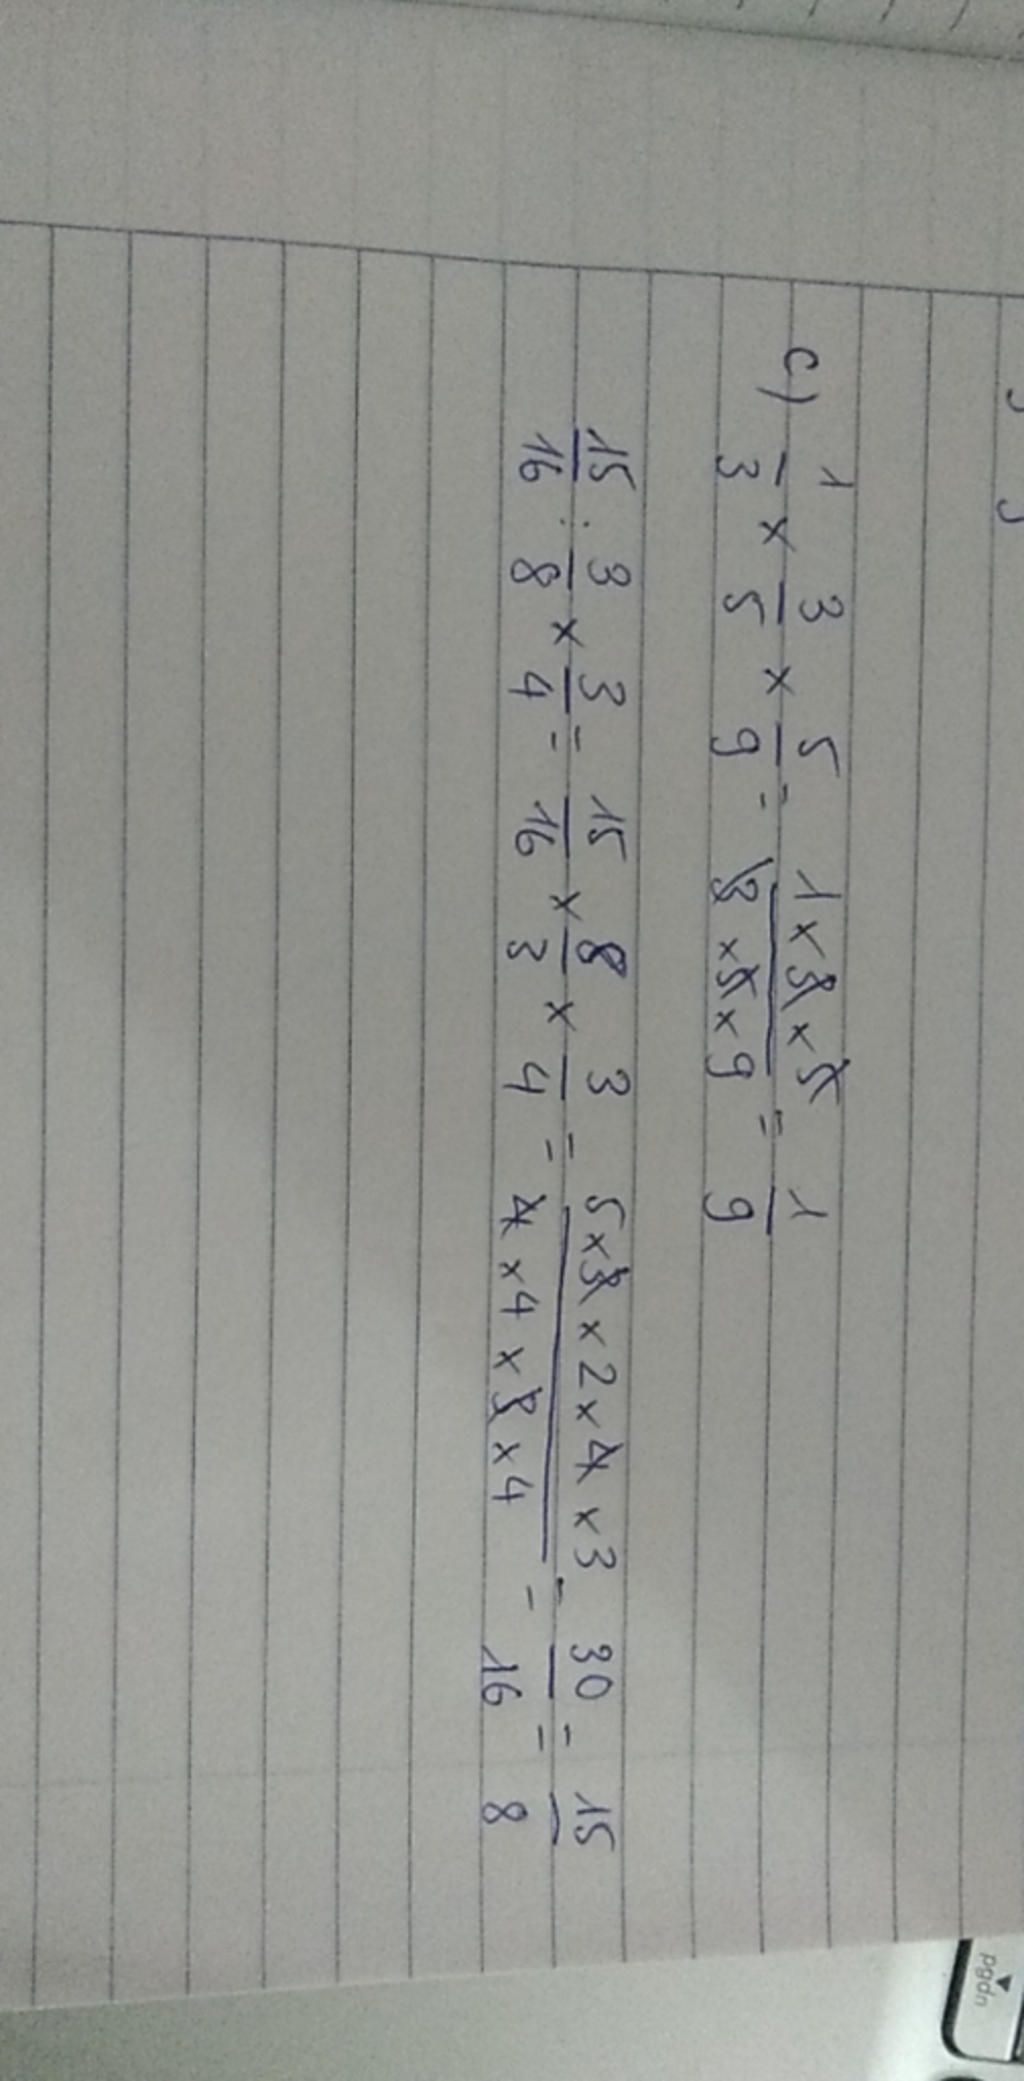 c) 1/3 × 3/5 × 5/9 = 1×3×5 / 3×5×9 = 1/9
15/16 : 3/8 × 3/4 = 15/16 × 8/3 × 3/4 = 5×3×2×4×3 / 4×4×3×4 = 30/16 = 15/8
pgdn